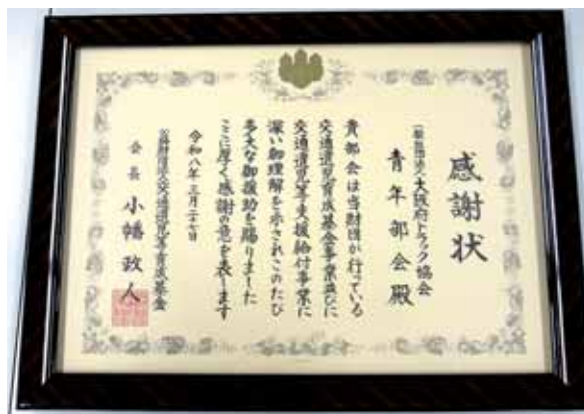 感謝状
一般社団法人大阪府トラック協会
青年部会殿
貴部会は当財団が行っている
交通遺児育成基金事業並びに
交通遺児等支援給付事業に
深い御理解を示されこのたび
多大な御援助を賜りました
ここに厚く感謝の意を表します
令和八年三月二十七日
公益財団法人交通遺児等育成基金
会長 小幡政人